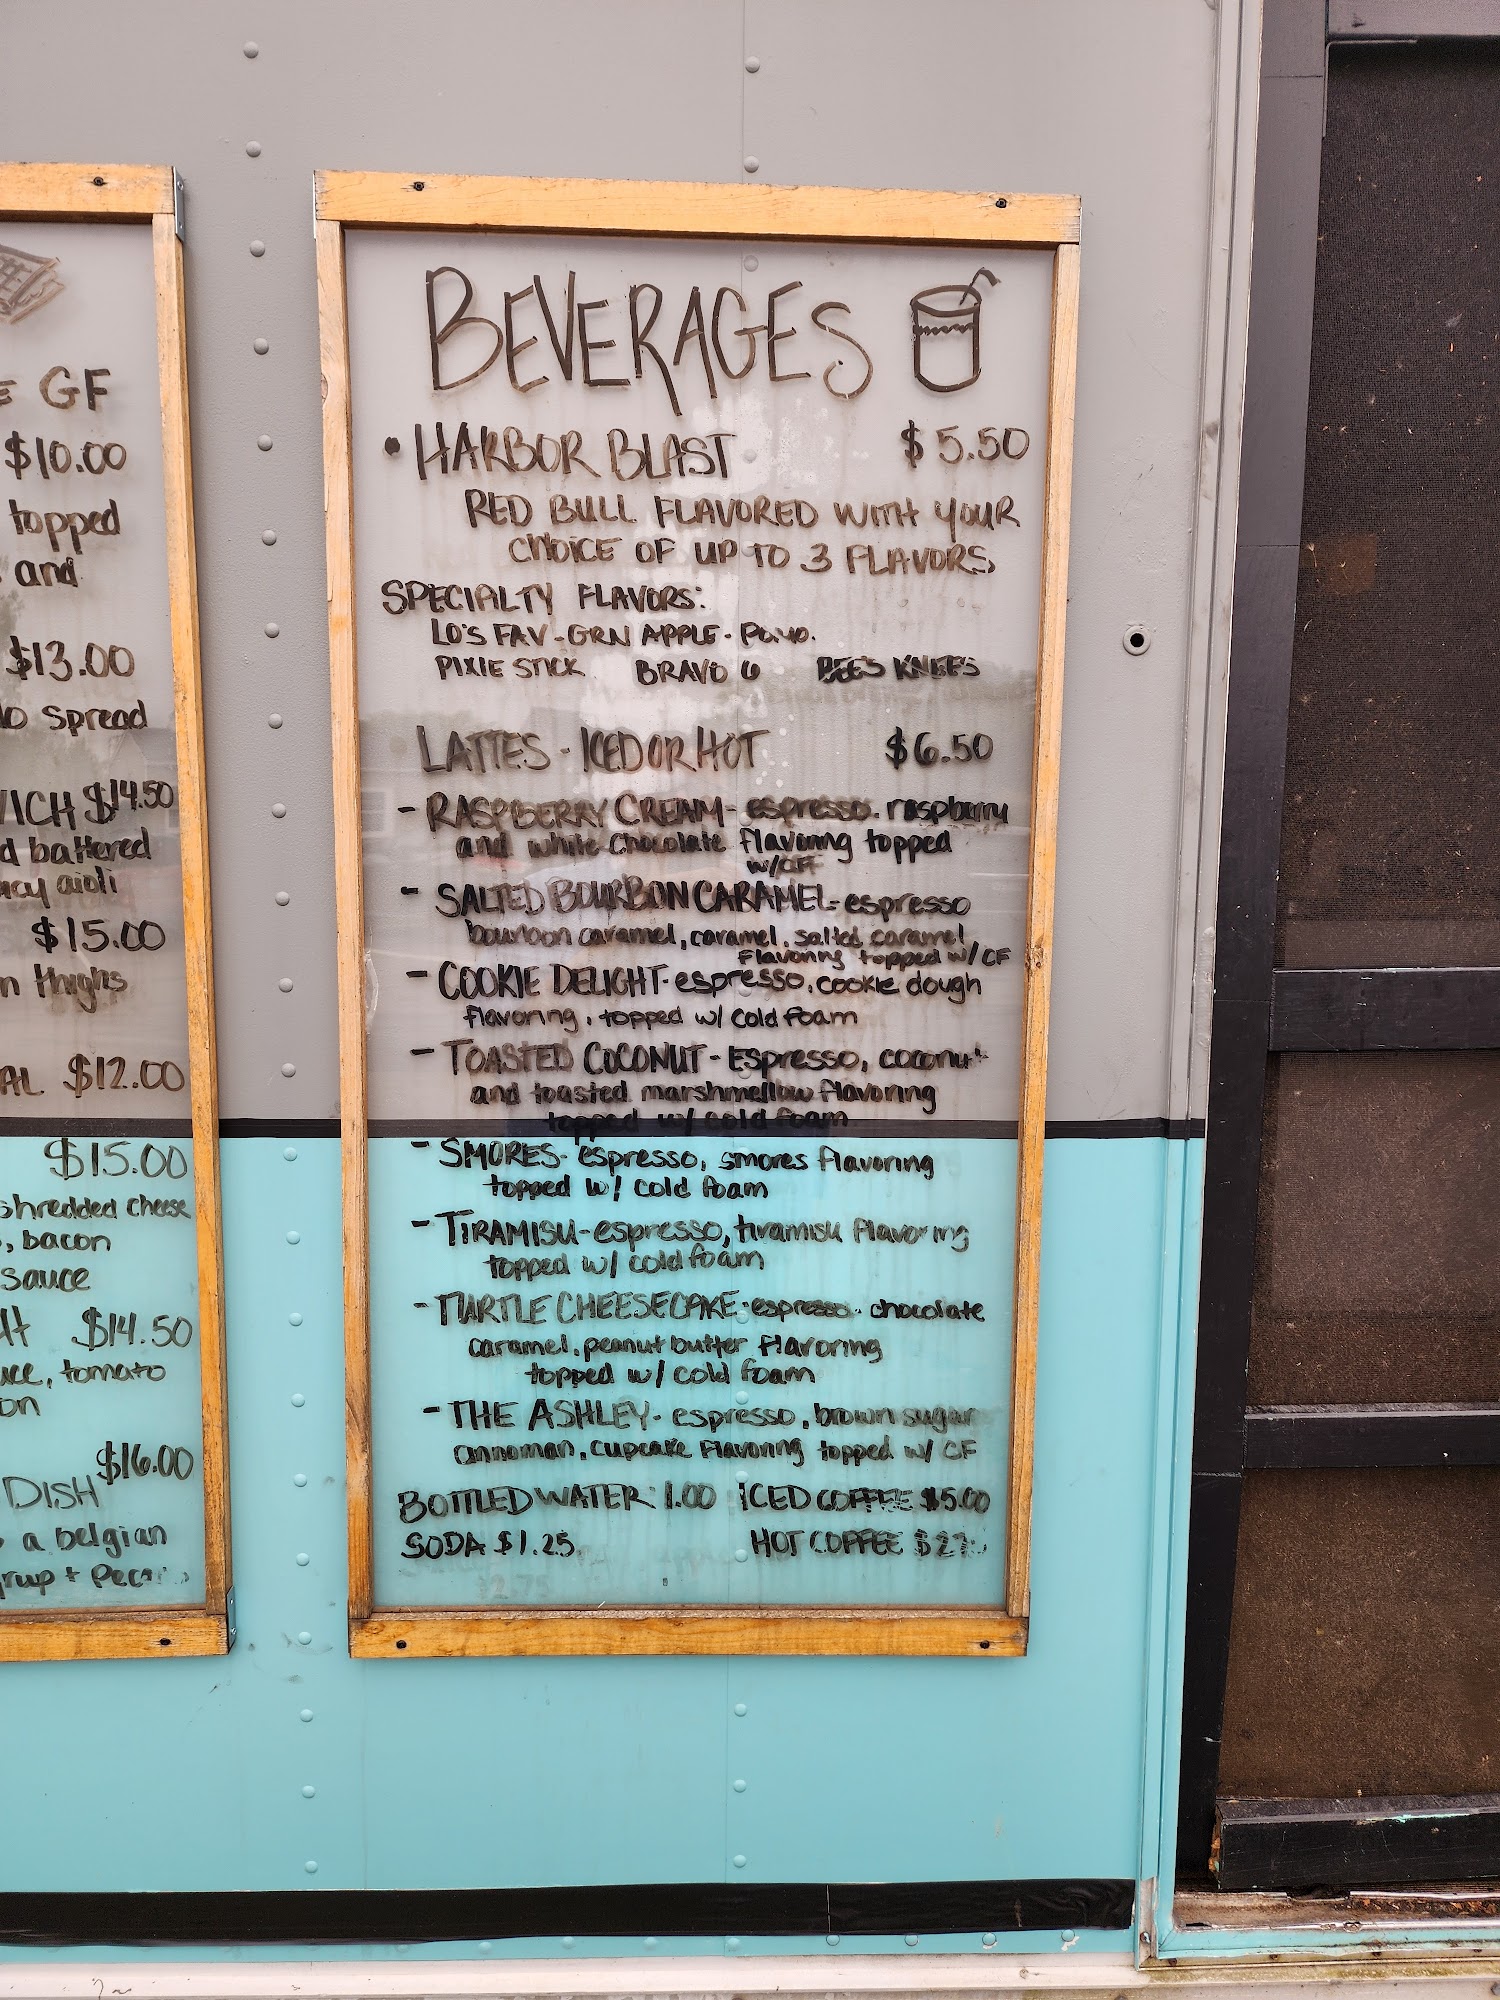 E GF
$10.00
topped
and
$13.00
spread
WICH $14.50
d battered
acy aioli
$15.00
n thighs
AL $12.00
$15.00
shredded cheese
, bacon
sauce
$14.50
uce, tomato
on
$16.00
DISH
a belgian
yrup +
BEVERAGES
• HARBOR BLAST $5.50
RED BULL FLAVORED WITH YOUR
CHOICE OF UP TO 3 FLAVORS
SPECIALTY FLAVORS:
LO'S FAV - GRN APPLE -
PIXIE STICK BRAVO 6 BEE'S KNEES
LATTES - ICED OR HOT $6.50
- RASPBERRY CREAM - espresso, raspberry
and white chocolate flavoring topped
w/CF
- SALTED BOURBON CARAMEL - espresso
bourbon caramel, caramel, salted caramel
flavoring topped w/ CF
- COOKIE DELIGHT - espresso, cookie dough
flavoring, topped w/ cold foam
- TOASTED COCONUT - Espresso, coconut
and toasted marshmellow flavoring
topped w/ cold foam
- SMORES - espresso, smores flavoring
topped w/ cold foam
- TIRAMISU - espresso, tiramisu flavoring
topped w/ cold foam
- TURTLE CHEESECAKE - espresso, chocolate
caramel, peanut butter flavoring
topped w/ cold foam
- THE ASHLEY - espresso, brown sugar
cinnoman, cupcake flavoring topped w/ CF
BOTTLED WATER 1.00 ICED COFFEE $5.00
SODA $1.25 HOT COFFEE
$2.75